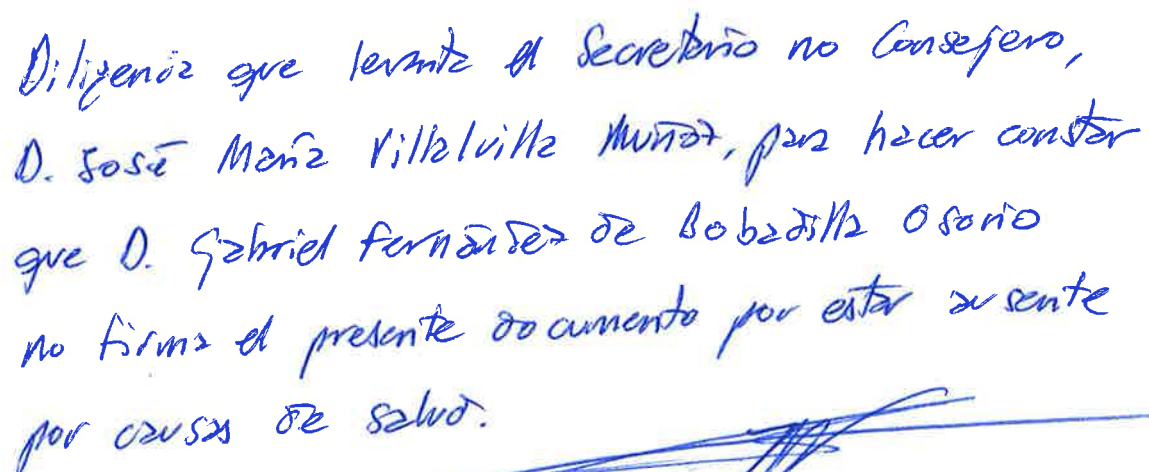 Diligencia que levanta el Secretario no Consejero,
D. José María Villalvilla Muñoz, para hacer constar
que D. Gabriel Fernández de Bobadilla Osorio
no firma el presente documento por estar ausente
por causas de salud.